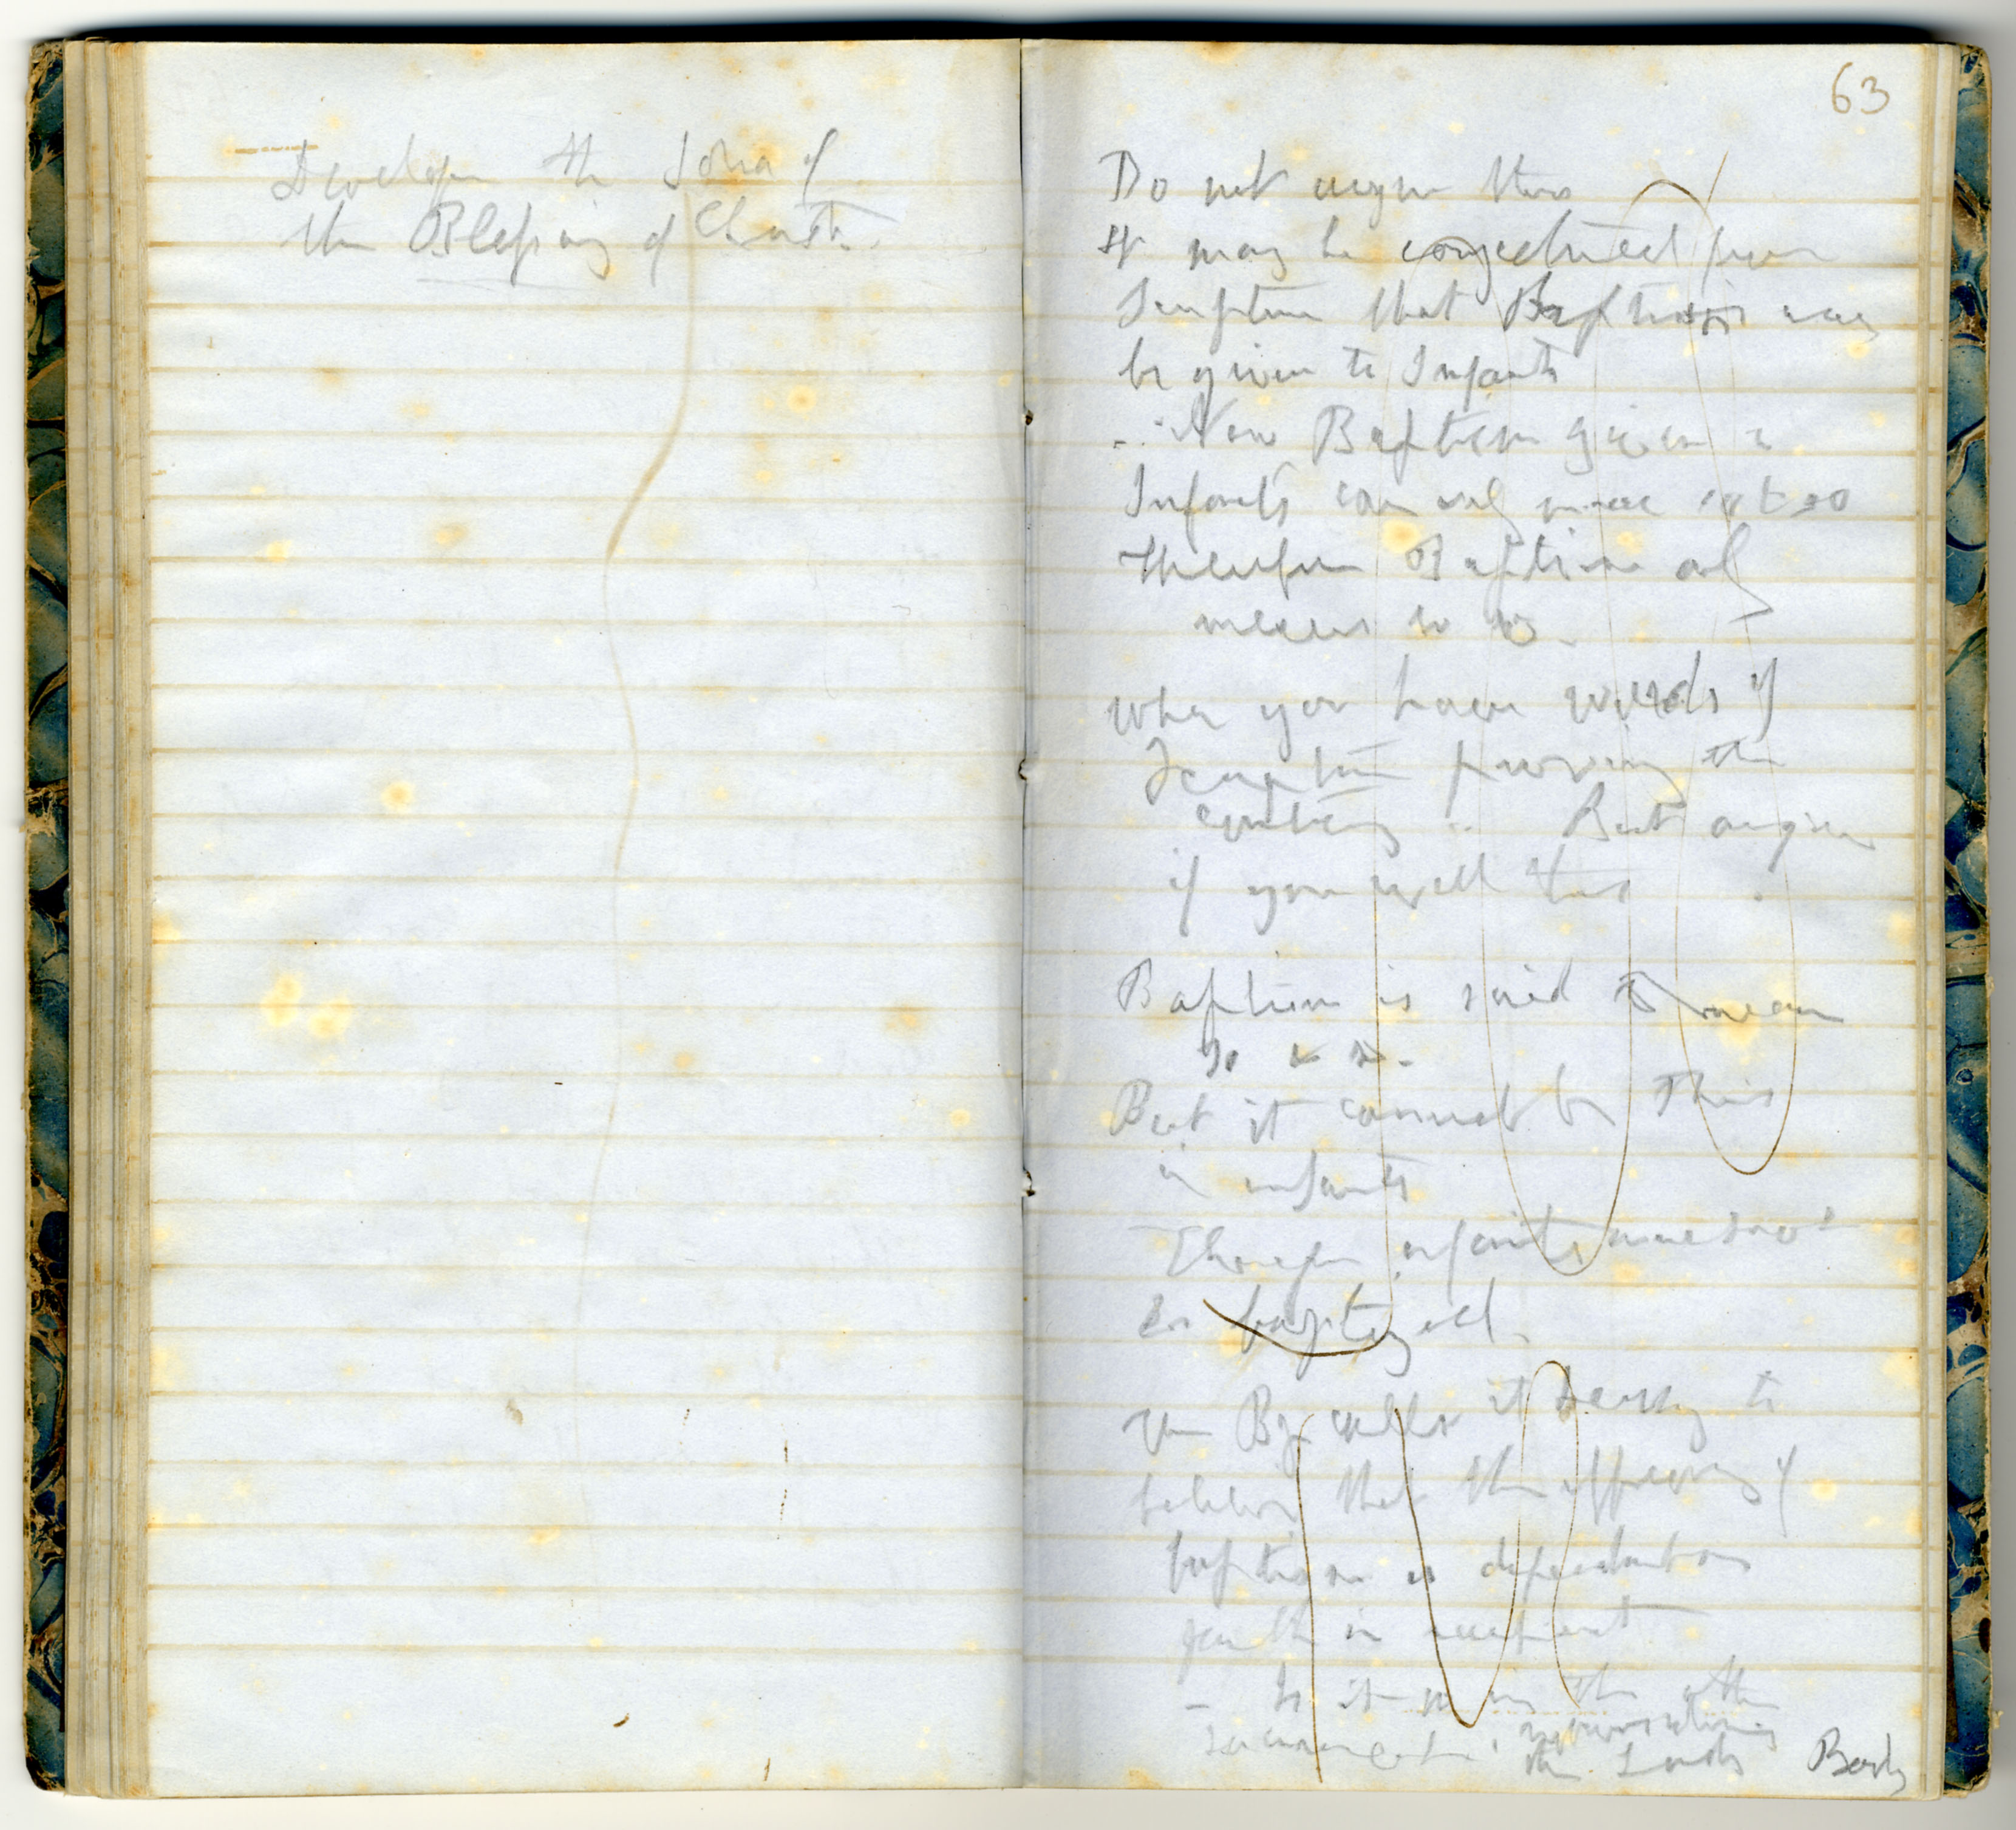 Develope the Idea of
the Blessing of Christ.
63
Do not argue thus
It may be conjectured from
Scripture that Baptism may
be given to Infants
Now Baptism given to
Infants can only mean so & so
Therefore Baptism only
means so & so.
When you have words of
Scripture proving the
contrary .. But argue
if you will thus
Baptism is said to mean
so & so.
But it cannot be this
in infants
Therefore infants must not
be baptized.
The Bp. calls it to
believe that the efficacy of
baptism is dependent on
faith in recipient
- Is it so in the other
sacrament, representing
the Lords Body